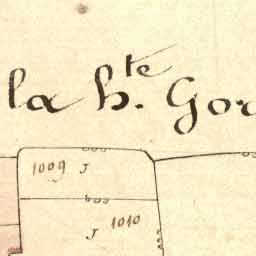 la h.te Gor
1009 J
1010
J